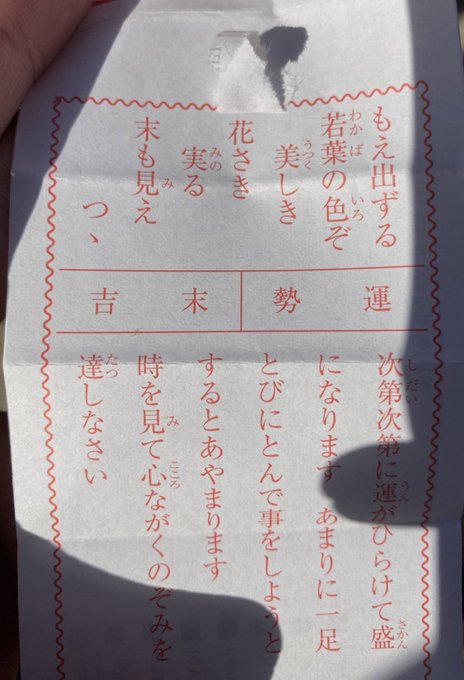 もえ出ずる
若葉の色ぞ
美しき
花さき
実る
末も見え
つゝ
運勢
末吉
次第次第に運がひらけて盛
になります あまりに一足
とびにとんで事をしようと
するとあやまります
時を見て心ながくのぞみを
達しなさい